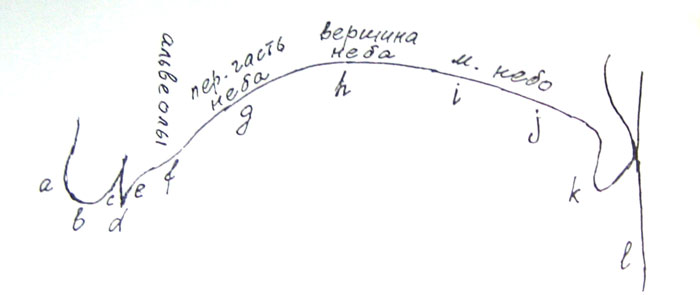 альвеолы
пер. часть
неба
вершина
неба
м. небо
a
b
c
d
e
f
g
h
i
j
k
l